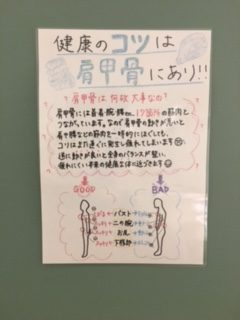 健康のコツは
肩甲骨にあり!!
肩甲骨は何故大事なの?
肩甲骨には首・背・腕・胸etc…17箇所の筋肉と
つながっています。なので肩甲骨の動きが悪いと
首や腰などの筋肉を一時的にほぐしても、
コリはまた直ぐに発生し疲れてしまいます
逆に動きが良いと全身のバランスが整い、
疲れにくい本来の健康な体に近づきます
GOOD
BAD
バスト
二の腕
お尻
下半身